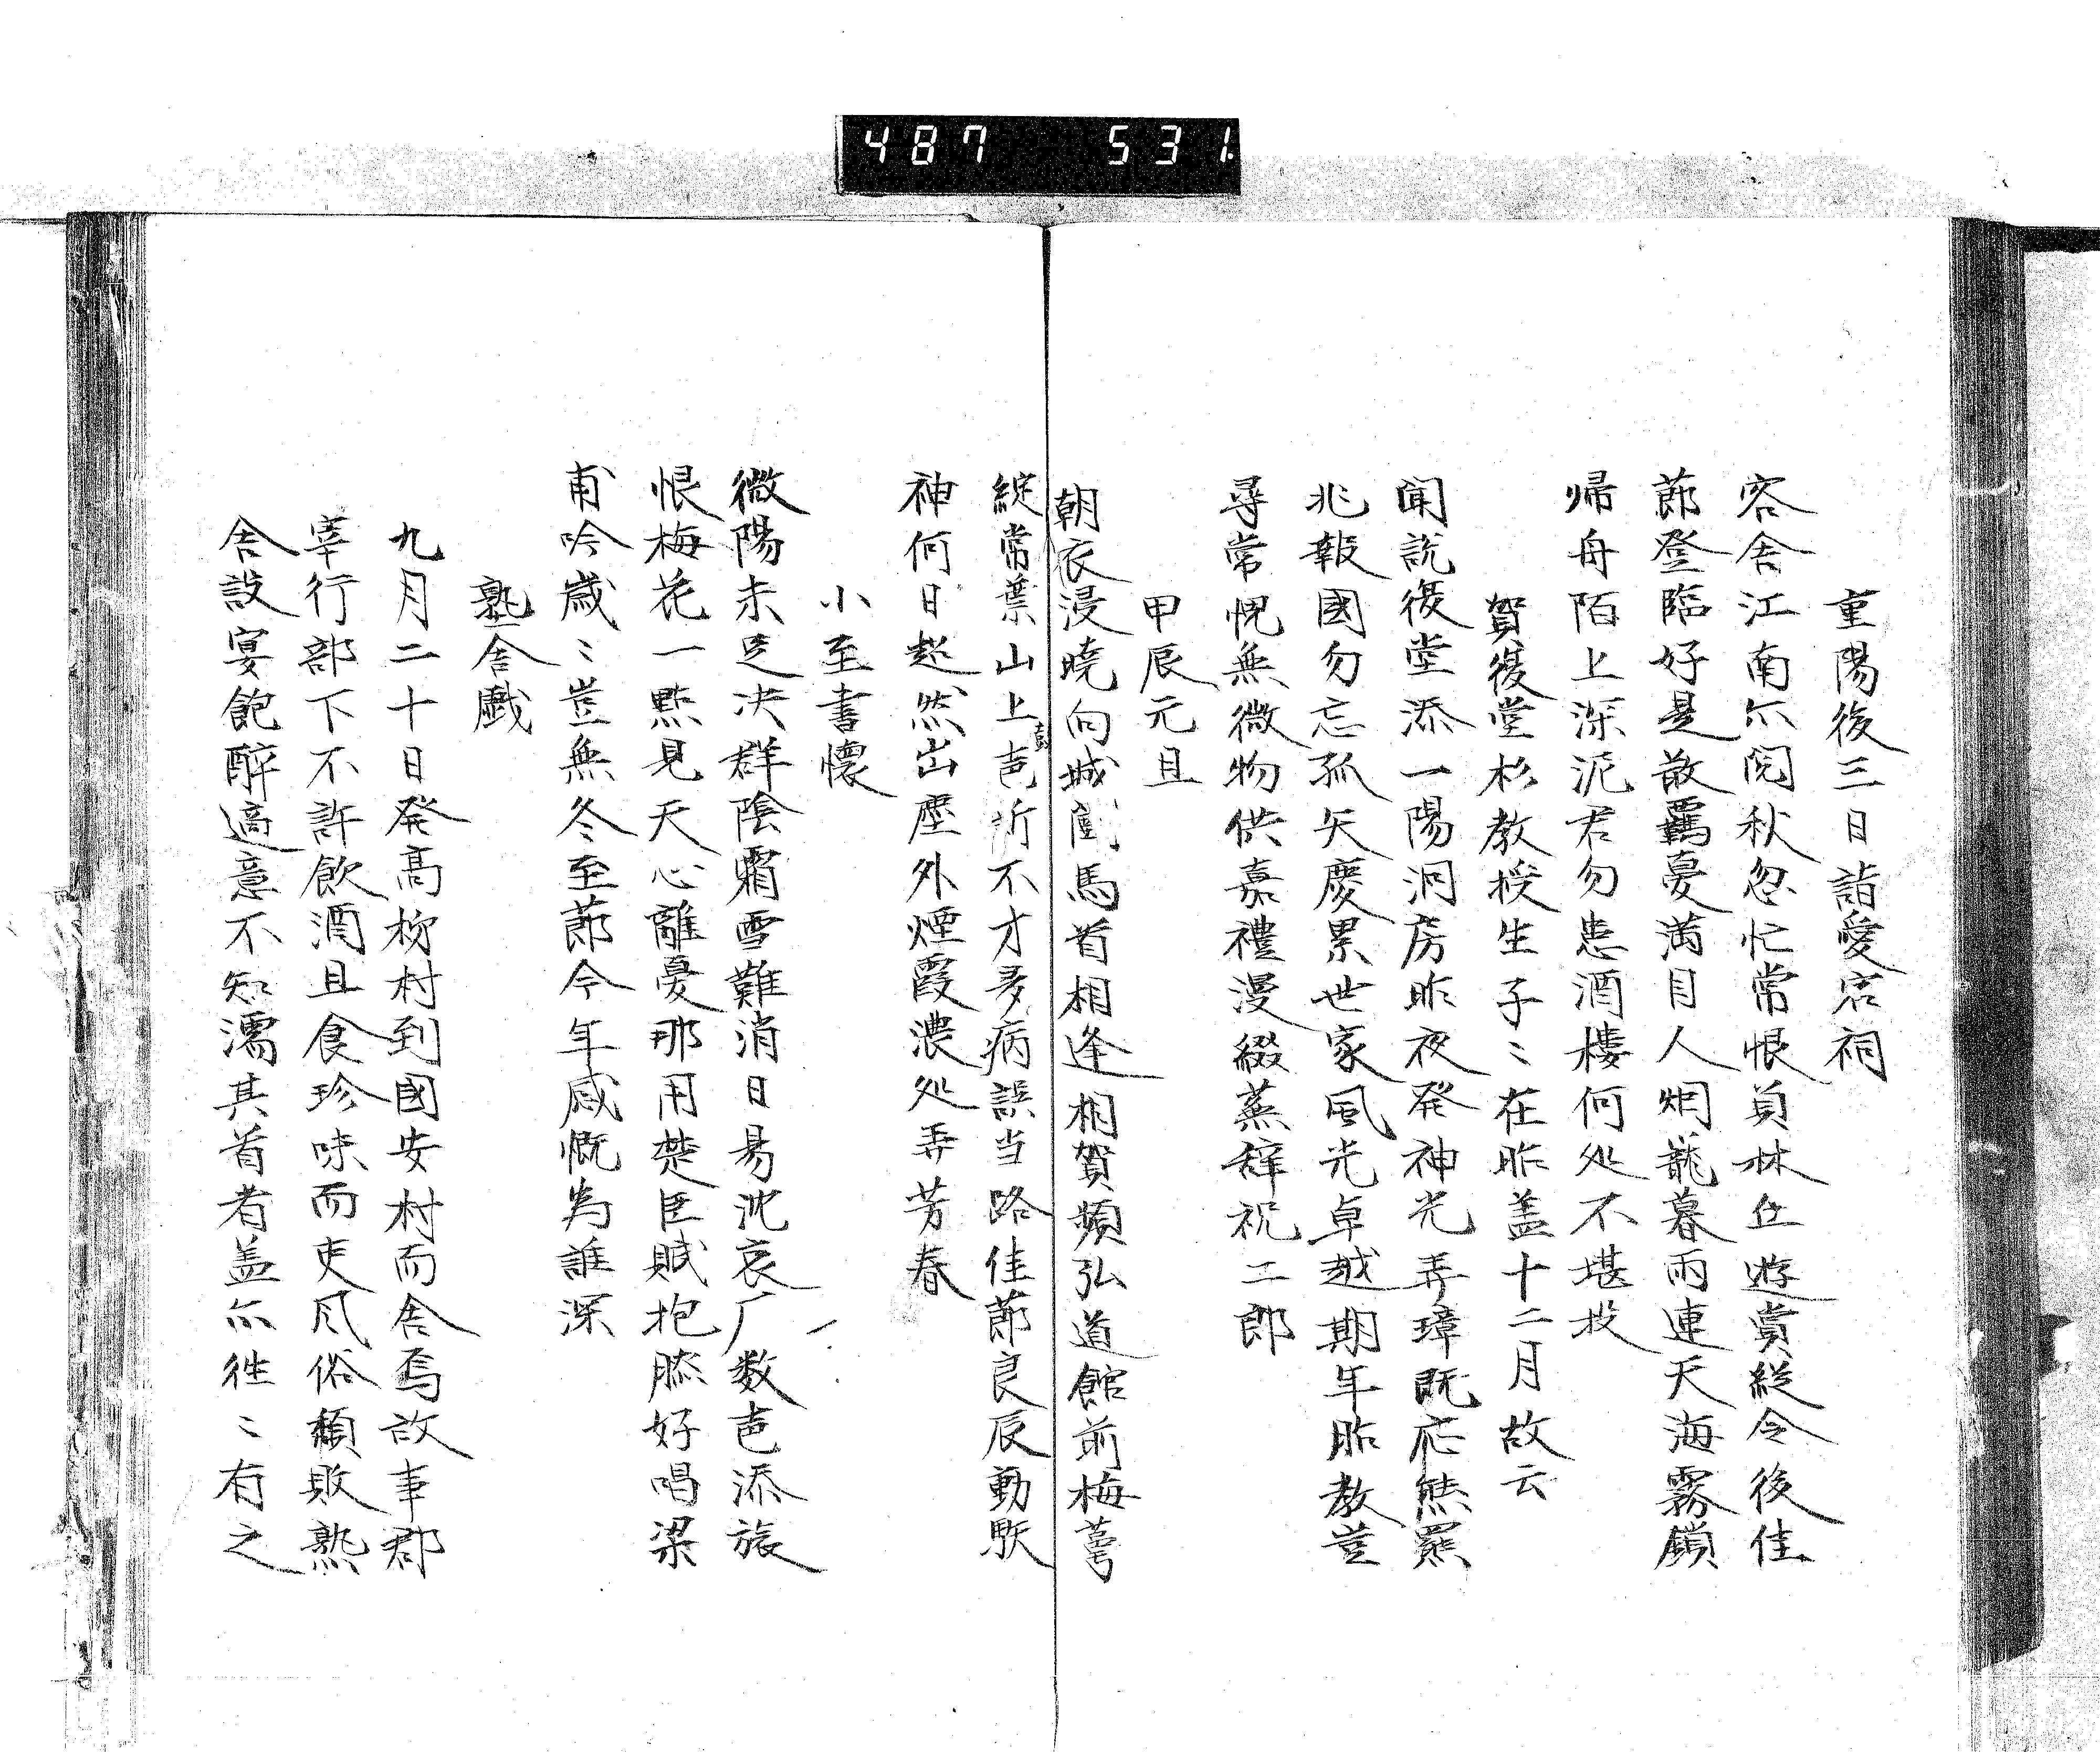 487 531.
重陽後三日詣愛宕祠
客舎江南亦閲秋忽忙常恨負林丘遊賞縦令後佳
節登臨好是散羈憂満目人烟籠暮雨連天海霧鎖
帰舟陌上深泥君勿患酒樓何処不堪投
賀復堂杉教授生子〻在昨盖十二月故云
聞説復堂添一陽洞房昨夜発神光弄璋既応熊羆
兆報國勿忘孤矢慶累世家風光卓越期年昨教豈
尋常愧無微物供嘉禮漫綴蕪辞祝二郎
甲辰元旦
朝衣浸暁向城闉馬首相逢相賀頻弘道館前梅蕚
綻常葉山上鼓声新不才多病誤当路佳節良辰動厭
神何日超然出塵外煙霞濃処弄芳春
小至書懐
微陽未足決群陰霜雪難消日易沈哀厂数声添旅
恨梅花一點見天心離憂那用楚臣賦抱膝好唱梁
甫吟歳〻豈無冬至節今年感慨為誰深
熟舎戯
九月二十日発高柳村到國安村而舎焉故事郡
宰行部下不許飲酒且食珍味而吏風俗頽敗熟
舎設宴飽酔適意不知濡其首者盖亦徃〻有之